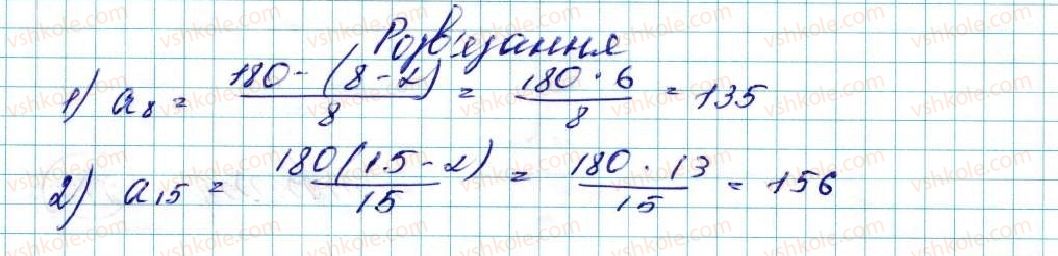 Розв'язання
1) a₈ = 180-(8-2)/8 = 180·6/8 = 135
2) a₁₅ = 180(15-2)/15 = 180·13/15 = 156